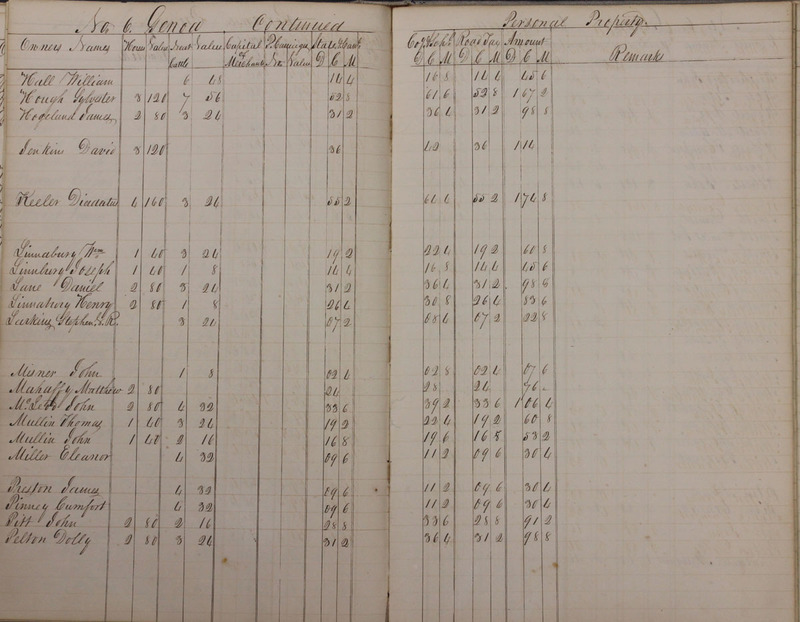 No 6. Genoa Continued Personal Property.
Owners Names Horses Value Neat Cattle Value Capital of Merchants P. Carriages No Value State & Canl D C M Co & School D C M Road Tax D C M Amount D C M Remarks
Hall William 6 48 14 4 16 8 14 4 45 6
Hough Sylvester 3 120 7 56 52 8 61 6 52 8 1 67 2
Hogelund James 2 80 3 24 31 2 36 4 31 2 98 8
Jenkins David 3 120 36 42 36 1 14
Keeler 4 160 3 24 55 2 64 4 55 2 1 74 8
Linnabury Wm 1 40 3 24 19 2 22 4 19 2 60 8
Linnbury Joseph 1 40 1 8 14 4 16 8 14 4 45 6
Lane Daniel 2 80 3 24 31 2 36 4 31 2 98 8
Linnabury Henry 2 80 1 8 26 4 30 8 26 4 83 6
Larkins Stephen R. 3 24 07 2 08 4 07 2 22 8
Misner John 1 8 02 4 02 8 02 4 07 6
Mahaffy Matthew 2 80 24 28 24 76
John 2 80 4 32 33 6 39 2 33 6 1 06 4
Mullin Thomas 1 40 3 24 19 2 22 4 19 2 60 8
Mullin John 1 40 2 16 16 8 19 6 16 8 53 2
Miller Eleanor 4 32 09 6 11 2 09 6 30 4
Preston James 4 32 09 6 11 2 09 6 30 4
Pinney Cumfort 4 32 09 6 11 2 09 6 30 4
Pitt John 2 80 2 16 28 8 33 6 28 8 91 2
Pelton Dolly 2 80 3 24 31 2 36 4 31 2 98 8